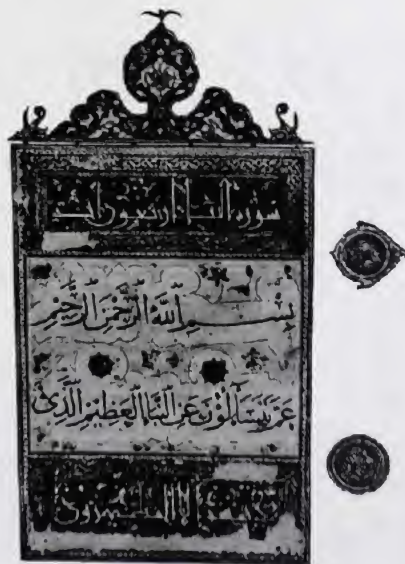 سورة النبا اربعون اية
بِسْمِ اللَّهِ الرَّحْمَنِ الرَّحِيمِ
عَمَّ يَتَسَاءَلُونَ عَنِ النَّبَإِ الْعَظِيمِ الَّذِي